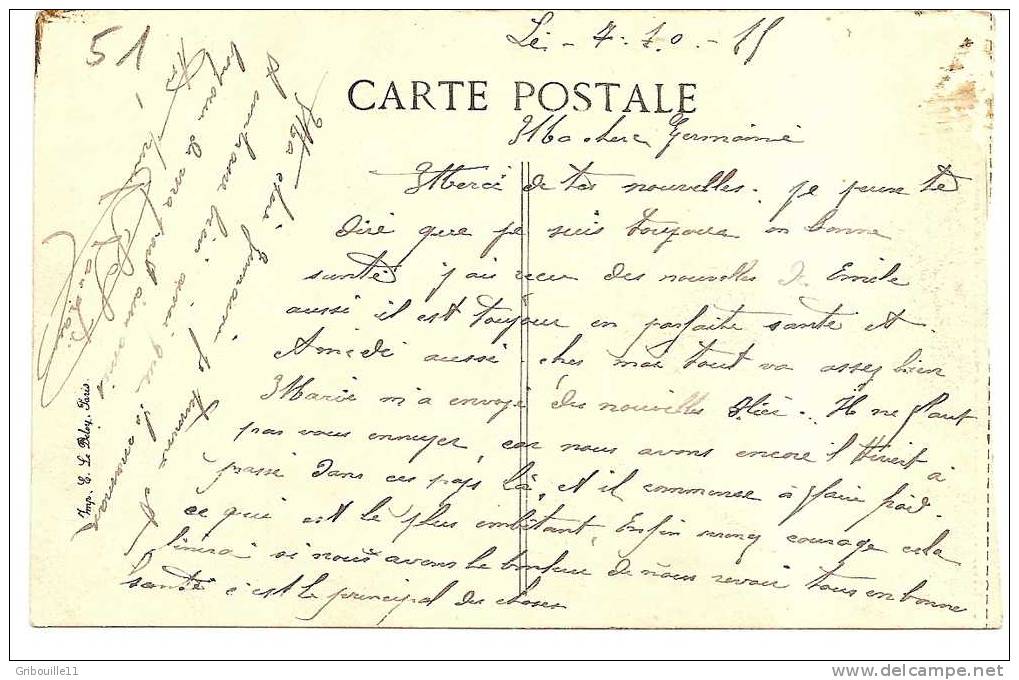 51
Le - 7-10-15
CARTE POSTALE
Ma chere Germaine
Merci de tes nouvelles. je puis te
dire que je suis toujours en bonne
santé j'ai recu des nouvelles d'Emile
aussi il est toujour en parfaite sante et
Amédé aussi. chez moi tout va assez bien
Marie m'a envoyé des nouvelles Hier. Il ne faut
pas vous ennuyer, car nous avons encore l'Hivert à
passé dans ces pays là, et il commense à faire froid.
ce qui est le plus embêtant, Enfin courage cela
finira si nous avons le bonheur de nous revoir tous en bonne
santé c'est le principal des choses
Ma chere Germaine je termine et
t'embrassant bien ainsi que
ma part ainsi
Imp. E. Le Deley, Paris.
Gribouille11
www.delcampe.net